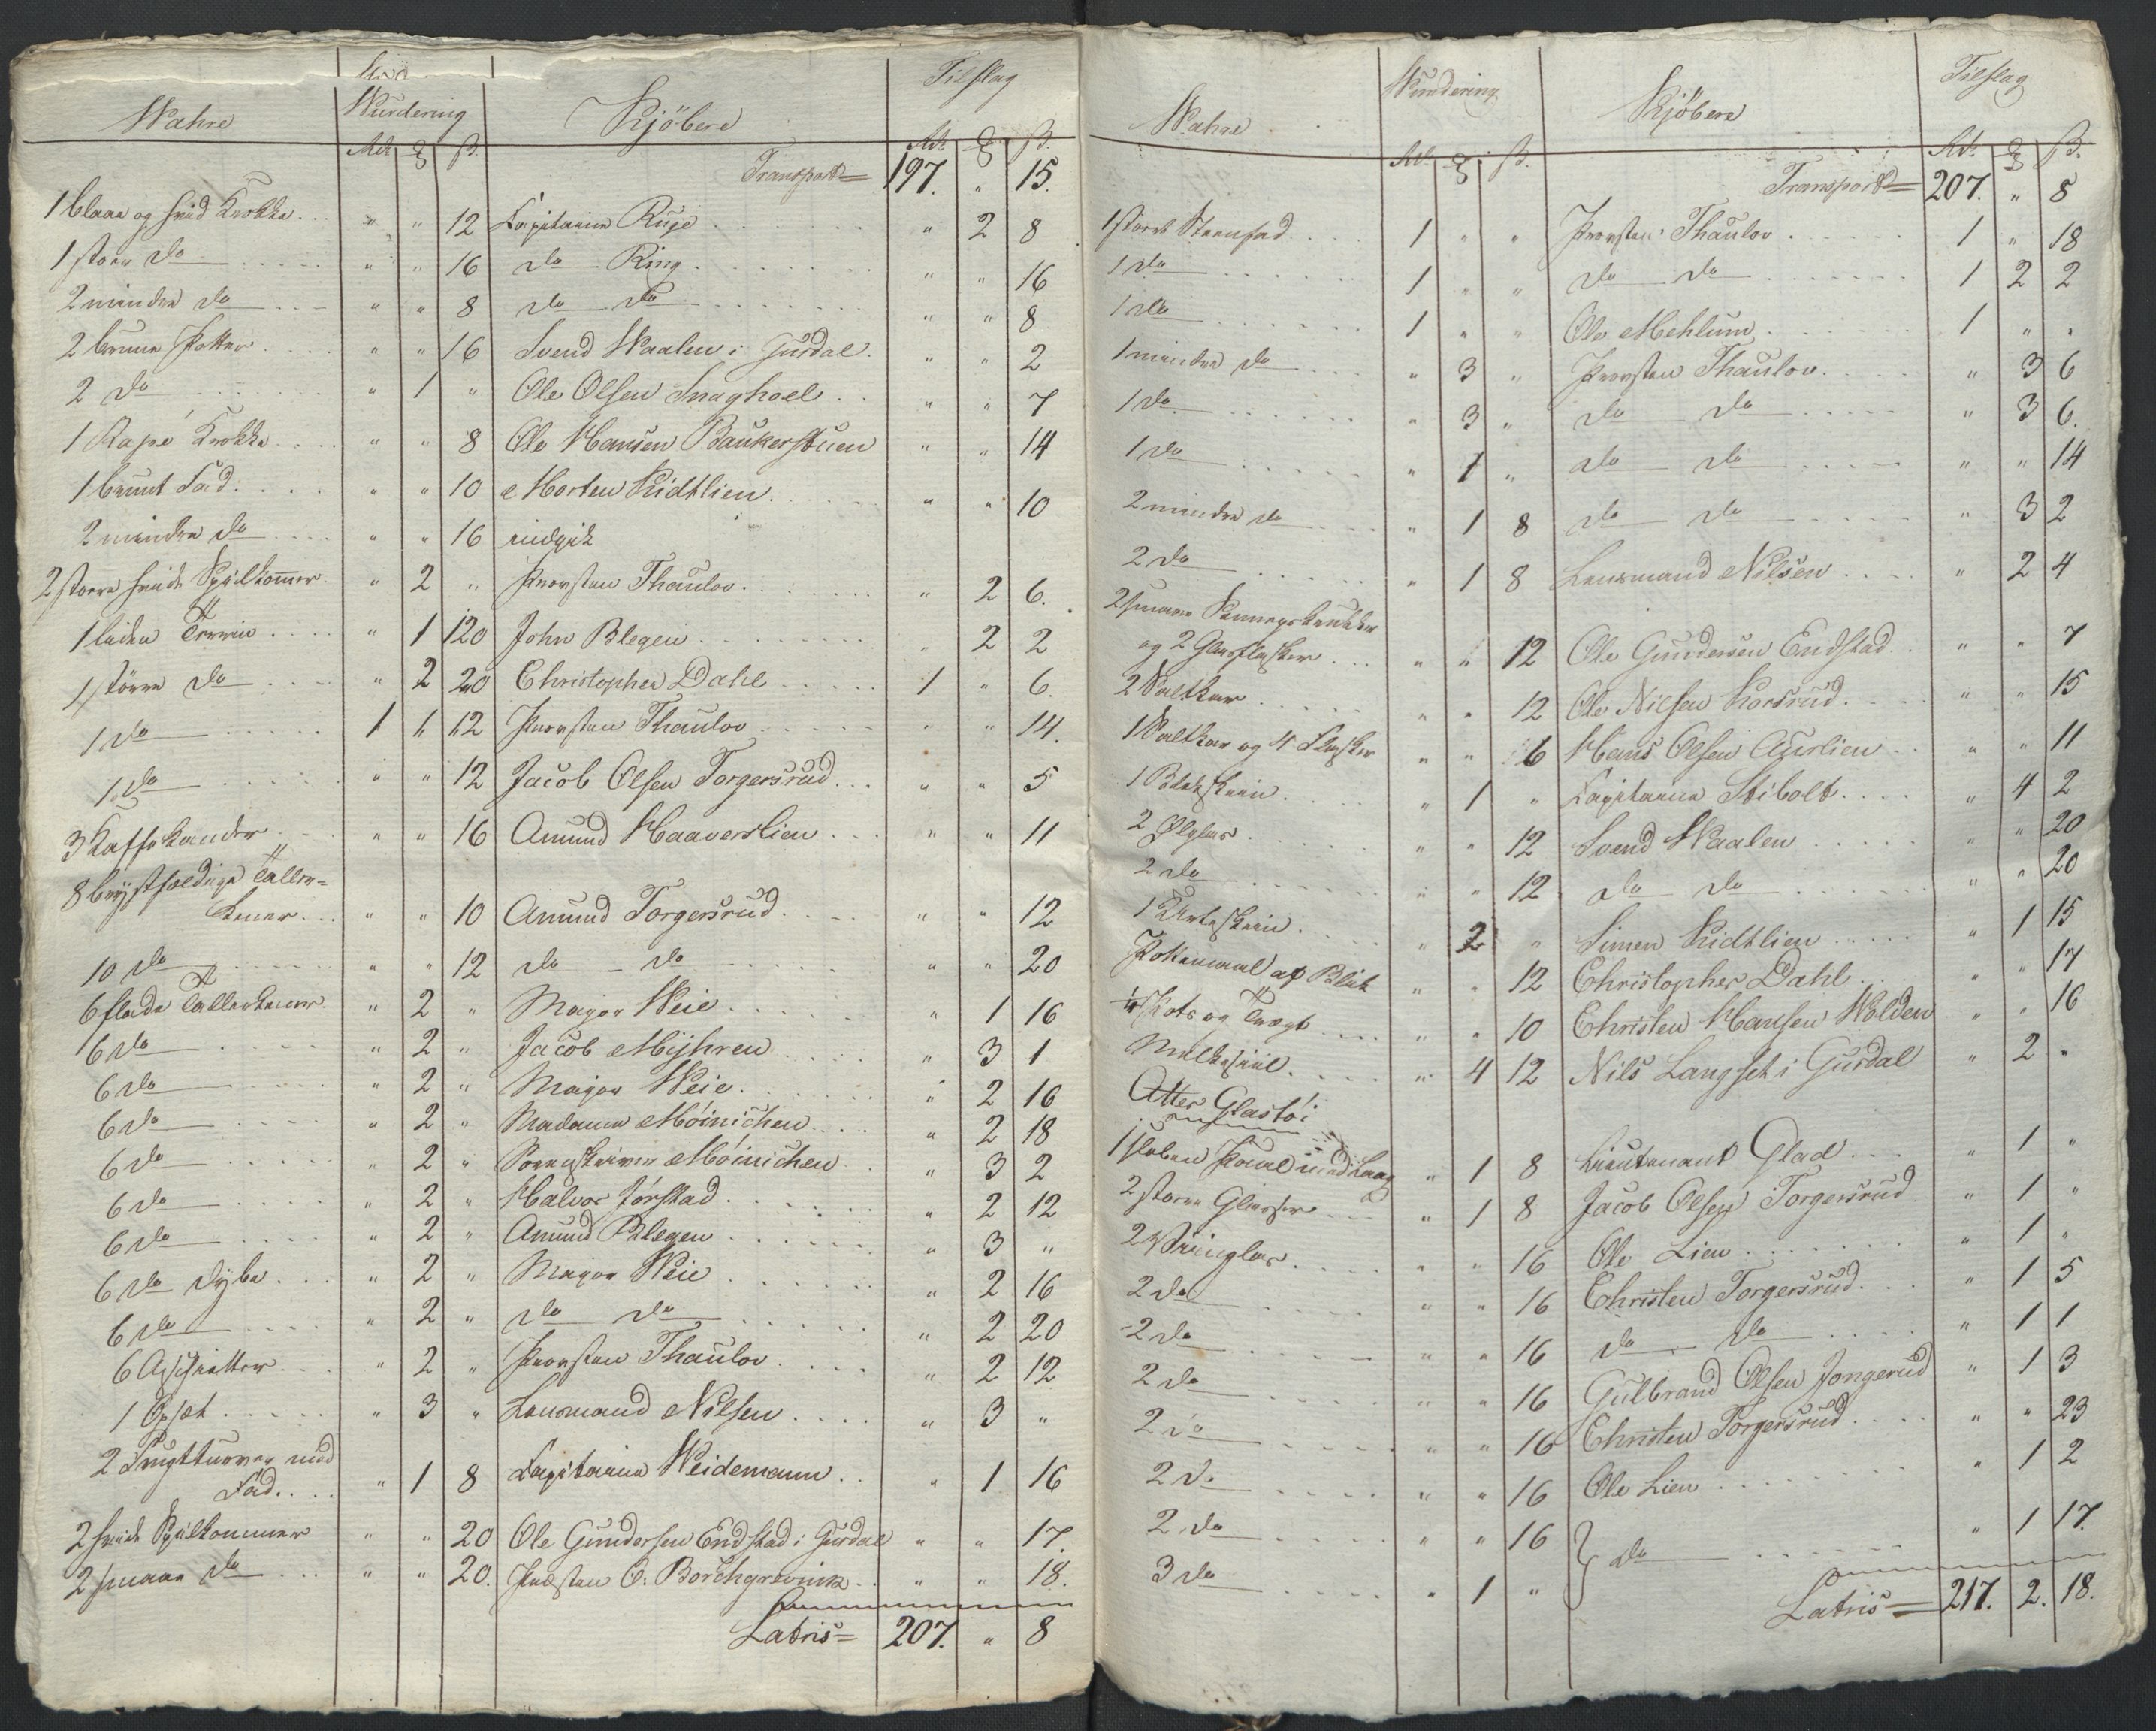 Wahre Wurdering Kjöbere Tilslag
Rdr ʒ ß. Rdr ʒ ß.
Transport = 197. " 15.
1 blaae og hvid Krokke... " " 12 Capitaine Ruge " 2 8
1 stoer do " " 16 do Ring " " 16
2 mindre do " " 8 do do " " 8
2 brune Potter " " 16 Svend Waalen i Gusdal. " " 2
2 do " 1 " Ole Olsen Snaghoel " " 7
1 Rapé Krokke " " 8 Ole Hansen Baukerstuen " " 14
1 bruunt Fad " " 10 Morten Kidtlien " " 10
2 mindre do " " 16 undgik
2 store hvide Spölkommer " 2 " Provsten Thaulov " 2 6.
1 liden Terrin " 1 120 John Blegen " 2 2
1 större do " 2 20 Christopher Dahl 1 " 6
1 do 1 1 12 Provsten Thaulov " " 14.
1 do " " 12 Jacob Olsen Torgersrud " " 5
3 Kaffekander " " 16 Amund Haaverslien " " 11
8 brystfældige Taller=
kener " " 10 Amund Torgersrud " " 12
10 do " " 12 do - do " " 20
6 flade Tallerkener " 2 " Major Weie " 1 16
6 do " 2 " Jacob Myhren " 3 1
6 do " 2 " Major Weie " 2 16
6 do " 2 " Madame Möinichen " 2 18
6 do " 2 " Sorenskriver Möinichen " 3 2
6 do " 2 " Halvor Jörstad " 2 12
6 do " 2 " Amund Blegen " 3 "
6 do dybe " 2 " Major Weie " 2 16
6 do " 2 " do do " 2 20
6 Aschietter " 2 " Provsten Thaulov " 2 12
1 Opsat " 3 " Lensmand Nilsen " 3 "
2 Frugtkurver med
Fad " 1 8 Capitaine Weidemann " 1 16
2 hvide Spölkommer " " 20 Ole Gundersen Endstad i Gusdal " " 17.
2 smaae do " " 20. Præsten O: Borchgrevink " " 18.
Latris = 207. " 8
Wahre Wurdering Kjöbere Tilslag
Rdr ʒ ß. Rdr ʒ ß.
Transport = 207. " 8
1 stort Steenfad 1 " " Provsten Thaulov 1 " 18
1 do 1 " " do do 1 2 2
1 do 1 " " Ole Mehlum 1 " "
1 mindre do " 3 " Provsten Thaulov " 3 6
1 do " 3 " do do " 3 6.
1 do " 1 " do do " " 14
2 mindre do " 1 8 do do " 3 2
2 do " 1 8 Lensmand Nilsen " 2 4
2 smaae Sennepskrukker
og 2 Glasflasker " " 12 Ole Gundersen Endstad " " 7
2 Saltkar " " 12 Ole Nilsen Korsrud " " 15
1 Saltkar og 4 Flasker " " 6 Hans Olsen Aurlien " " 11
1 Blekskrin " 1 " Capitaine Stibolt " 4 2
2 Ølglas " " 12 Svend Waalen " " 20
2 do " " 12 do do " " 20
1 Urteskrin " 2 " Simen Kidtlien " 1 15
Pottemaal af Blik " " 12 Christopher Dahl " " 17
og Tragt " " 10 Christen Hansen Wolden " " 16
Melkesiil " 4 12 Nils Langset i Gusdal " 2 "
Atter Glastöi
1 sleben Pocal med Laag " 1 8 Lieutenant Glad " 1 "
2 store Glasser " 1 8 Jacob Olsen Torgersrud " 1 "
2 Viinglas " " 16 Ole Lien " 1 "
2 do " " 16 Christen Torgersrud " 1 5
2 do " " 16 do do " 1 1
2 do " " 16 Gulbrand Olsen Jongerud " 1 3
2 do " " 16 Christen Torgersrud " " 23
2 do " " 16 Ole Lien " 1 2
2 do " " 16 } do " 1 17.
3 do " 1 "
Latris = 217. 2. 18.